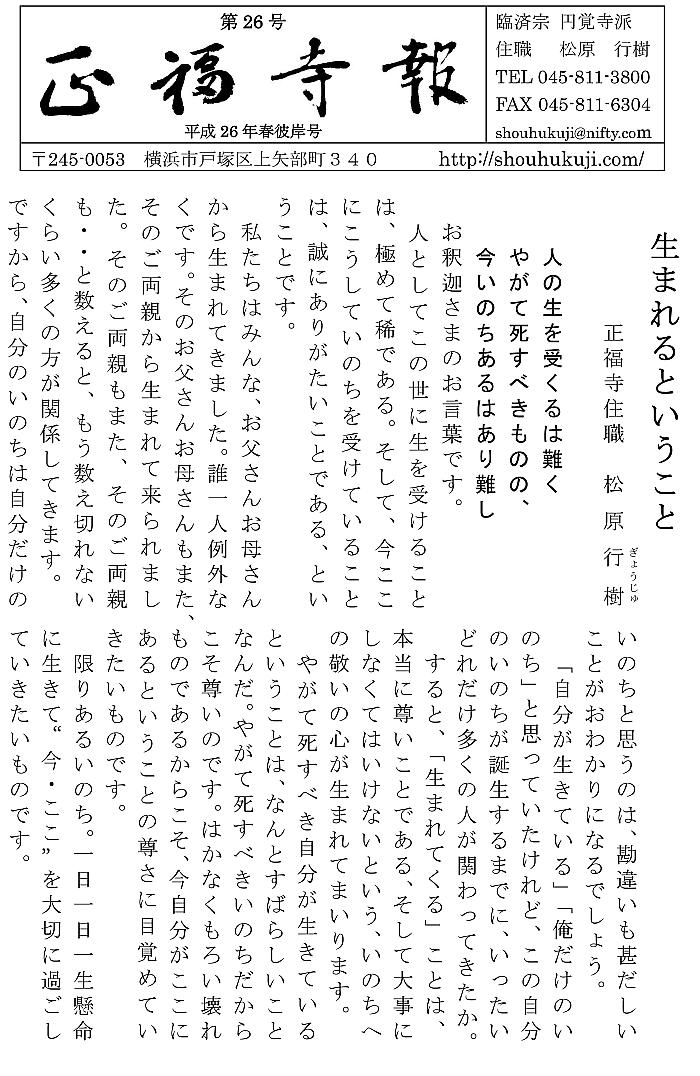 第26号
正福寺報
平成26年春彼岸号
臨済宗 円覚寺派
住職 松原 行樹
TEL 045-811-3800
FAX 045-811-6304
shouhukuji@nifty.com
〒245-0053 横浜市戸塚区上矢部町３４０ http://shouhukuji.com/
生まれるということ
正福寺住職 松原行樹
ぎょうじゅ
人の生を受くるは難く
やがて死すべきものの、
今いのちあるはあり難し
お釈迦さまのお言葉です。
人としてこの世に生を受けること
は、極めて稀である。そして、今ここ
にこうしていのちを受けていること
は、誠にありがたいことである、とい
うことです。
私たちはみんな、お父さんお母さん
から生まれてきました。誰一人例外な
くです。そのお父さんお母さんもまた、
そのご両親から生まれて来られまし
た。そのご両親もまた、そのご両親
も・・と数えると、もう数え切れない
くらい多くの方が関係してきます。
ですから、自分のいのちは自分だけの
いのちと思うのは、勘違いも甚だしい
ことがおわかりになるでしょう。
「自分が生きている」「俺だけのい
のち」と思っていたけれど、この自分
のいのちが誕生するまでに、いったい
どれだけ多くの人が関わってきたか。
すると、「生まれてくる」ことは、
本当に尊いことである、そして大事に
しなくてはいけないという、いのちへ
の敬いの心が生まれてまいります。
やがて死すべき自分が生きている
ということは、なんとすばらしいこと
なんだ。やがて死すべきいのちだから
こそ尊いのです。はかなくもろい壊れ
ものであるからこそ、今自分がここに
あるということの尊さに目覚めてい
きたいものです。
限りあるいのち。一日一日一生懸命
に生きて“今・ここ”を大切に過ごし
ていきたいものです。